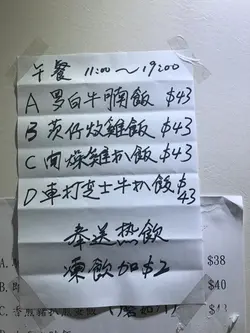 午餐 11:00～19:00
A 旱白牛腩飯 $43
B 茨仔炆雞飯 $43
C 间燥雞扒飯 $43
D 車打芝士牛扒飯 $43
奉送热飲
凍飲加$2
A. $38
B. $40
C. $43